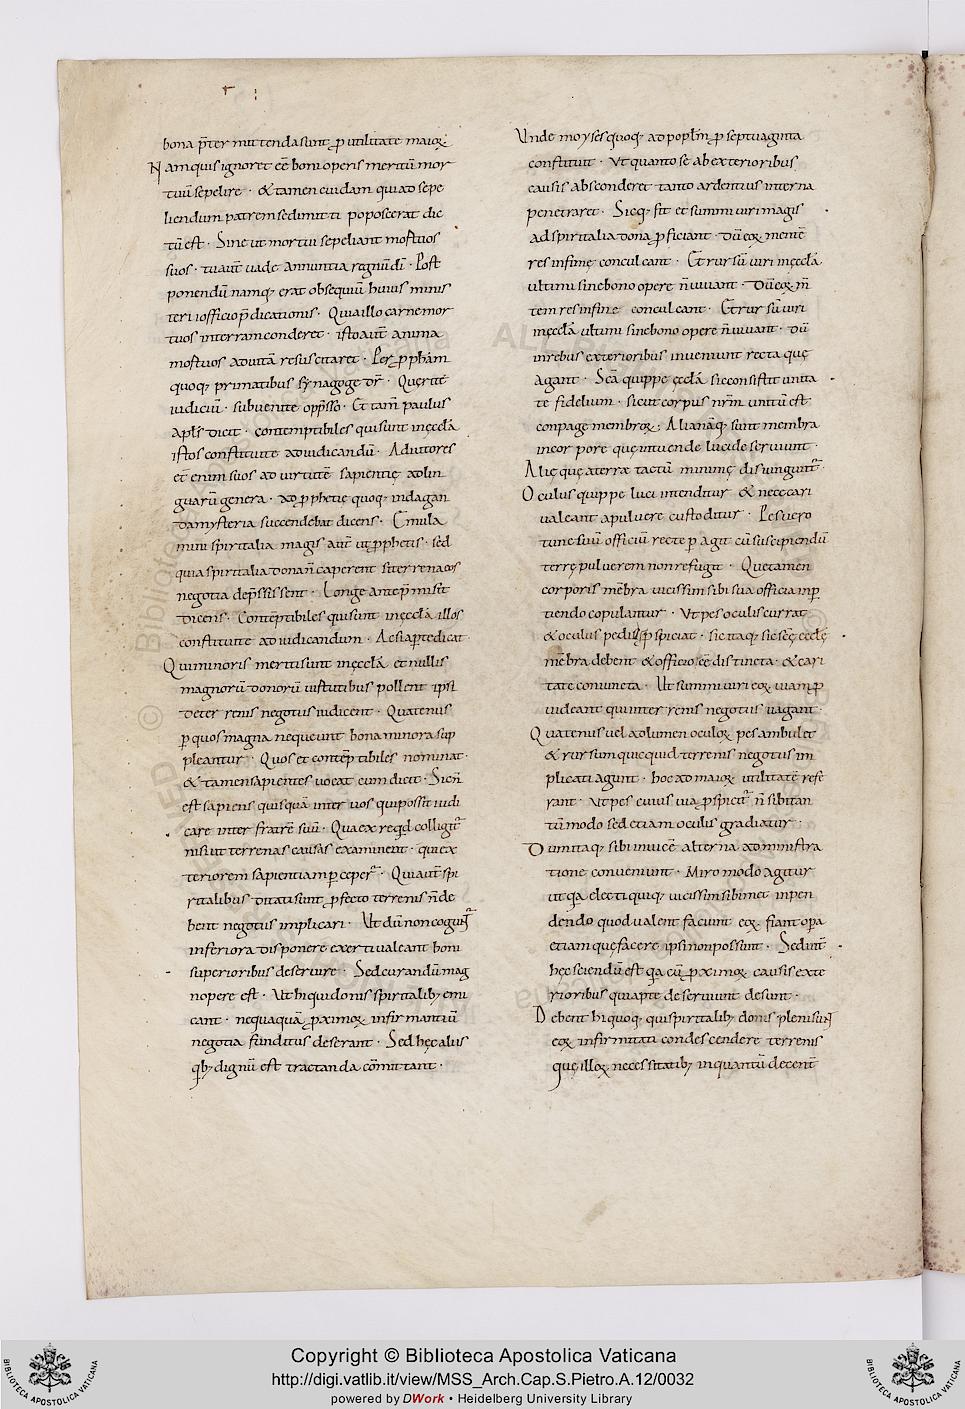 bona p̄ter mittenda sunt ꝓ utilitate maioꝝ
Nam quis ignoret eē boni operis meritū mor
tuū sepelire · & tamen cuidam qui ad sepe
liendum patrem se dimitti poposcerat dic
tū est · Sine ut mortui sepeliant mortuos
suos · tu aut̄ uade annuntia regnū dī · Post
ponendū namq; erat obsequiū huius minis
terii officio p̄dicationis · Quia illo carne mor
tuos in terram conderet · isto aut̄ anima
mortuos ad uitā resuscitaret · Per ꝓphām
quoq; primatibus synagoge dr̄ · Querite
iudiciū · subuenite opp̄sso · Et tam̄ paulus
apls̄ dicit · contemptibiles qui sunt in ęcclā
istos constituite ad iudicandū · Adiutores
et enim suos ad uirtutē sapientię ad lin
guarū genera · ad ꝓphetię quoq; indagan
da mysteria succendebat dicens · Emula
mini spiritalia magis aut̄ ut ꝓphetis · sed
quia spiritalia dona n̄ caperent si terrena eos
negotia dep̄ssissent · Longe ante p̄misit
dicens · Contēptibiles qui sunt in ęcclā illos
constituite ad iudicandum · Ac si apte dicat ·
Qui minoris meriti sunt in ęcclā et nullis
magnorū donorū uirtutibus pollent ipsi
de terrenis negotiis iudicent · Quatenus
ꝑ quos magna nequeunt bona minora sup
pleantur · Quos et contēptibiles nominat ·
& tamen sapientes uocat cum dicit · Sic n̄
est sapiens quisquā inter uos qui possit iudi
care inter fratrē suū · Qua ex re qd colligit̄
nisi ut terrenas causas examinent · qui ex
teriorem sapientiam ꝑceper̄ · Qui aut̄ spi
ritalibus ditati sunt ꝓfecto terrenis n̄ de
bent negotiis implicari · Ut dū non cogunt̄
inferiora disponere exerti ualeant boni
superioribus deseruire · Sed curandū mag
nopere est · Ut hi qui donis spiritalib; emi
cant · nequaquā ꝓximoꝝ infirmantiū
negotia funditus deserant · Sed hęc aliis
qb; dignū est tractanda cōmittant ·
Unde moyses quoq; ad poplm̄ ꝓ se septuaginta
constituit · Ut quanto se ab exterioribus
causis absconderet tanto ardentius interna
penetraret · Sicq; fit et summi uiri magis
ad spiritalia dona ꝓficiant · dū eoꝝ mentē
res infimę conculcant · Et rursū uiri in ęcclā
ultimi sine bono opere n̄ uiuant · Dū eoꝝ m̄
tem res infime conculcant · Et rursū uiri
in ęcclā ultimi sine bono opere n̄ uiuant · dū
in rebus exterioribus inueniunt recta quę
agant · Scā quippe ęcclā sic consistit unita
te fidelium · sicut corpus nr̄m unitū est
conpage membroꝝ; Alia namq; sunt membra
in corpore quę intuende luci deseruiunt ·
Alię quę a terrę tactū minimę disiungunt̄ ·
Oculus quippe luci intenditur & ne cecari
ualeant a puluere custoditur · Pes uero
tunc suū officiū recte ꝑagit cū suscipiendū
terrę puluerem non refugit · Quę tamen
corporis mēbra uicissim sibi sua officia inꝑ
tiendo copulantur · Ut pes oculis currat
& oculus pedi ꝓspiciat · sic itaq; sic scę ecclę
mēbra debent & officio eē distincta · & cari
tate coniuncta · Ut summi uiri eoꝝ uiam ꝓ
uideant qui in terrenis negotiis uagant ·
Quatenus uel ad lumen oculoꝝ pes ambulet
& rursum quicquid terrenis negotiis im
plicati agunt · hoc ad maioꝝ utilitatē refe
rant · ut pes cuius uia ꝓspicit̄ n̄ sibi tan
tū modo sed etiam oculis gradiatur ·
Dum itaq; sibi inuicē alterna administra
tione conueniunt · Miro modo agitur
ut qa electi quiq; uicissim sibimet inpen
dendo quod ualent faciunt eoꝝ fiant opa
etiam quę facere ipsi non possunt · Sed int̄
hęc sciendū est qa cū ꝓximoꝝ causis exte
rioribus qui apte deseruiunt desunt ·
Debent hi quoq; qui spiritalib; donis pleni sunt
eoꝝ infirmitati condescendere terrenis
quę illoꝝ necessitatib; in quantū decent̄
Copyright © Biblioteca Apostolica Vaticana
http://digi.vatlib.it/view/MSS_Arch.Cap.S.Pietro.A.12/0032
powered by DWork • Heidelberg University Library
BIBLIOTECA APOSTOLICA VATICANA
BIBLIOTECA APOSTOLICA VATICANA